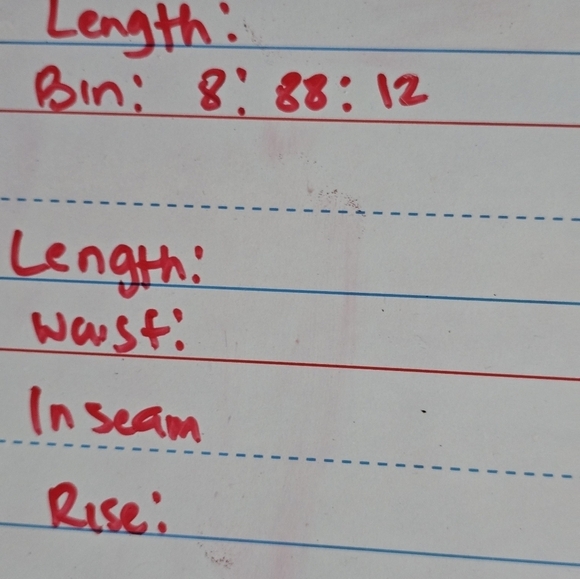 Length:
Bin: 8: 88: 12
Length:
Waist:
Inseam
Rise: